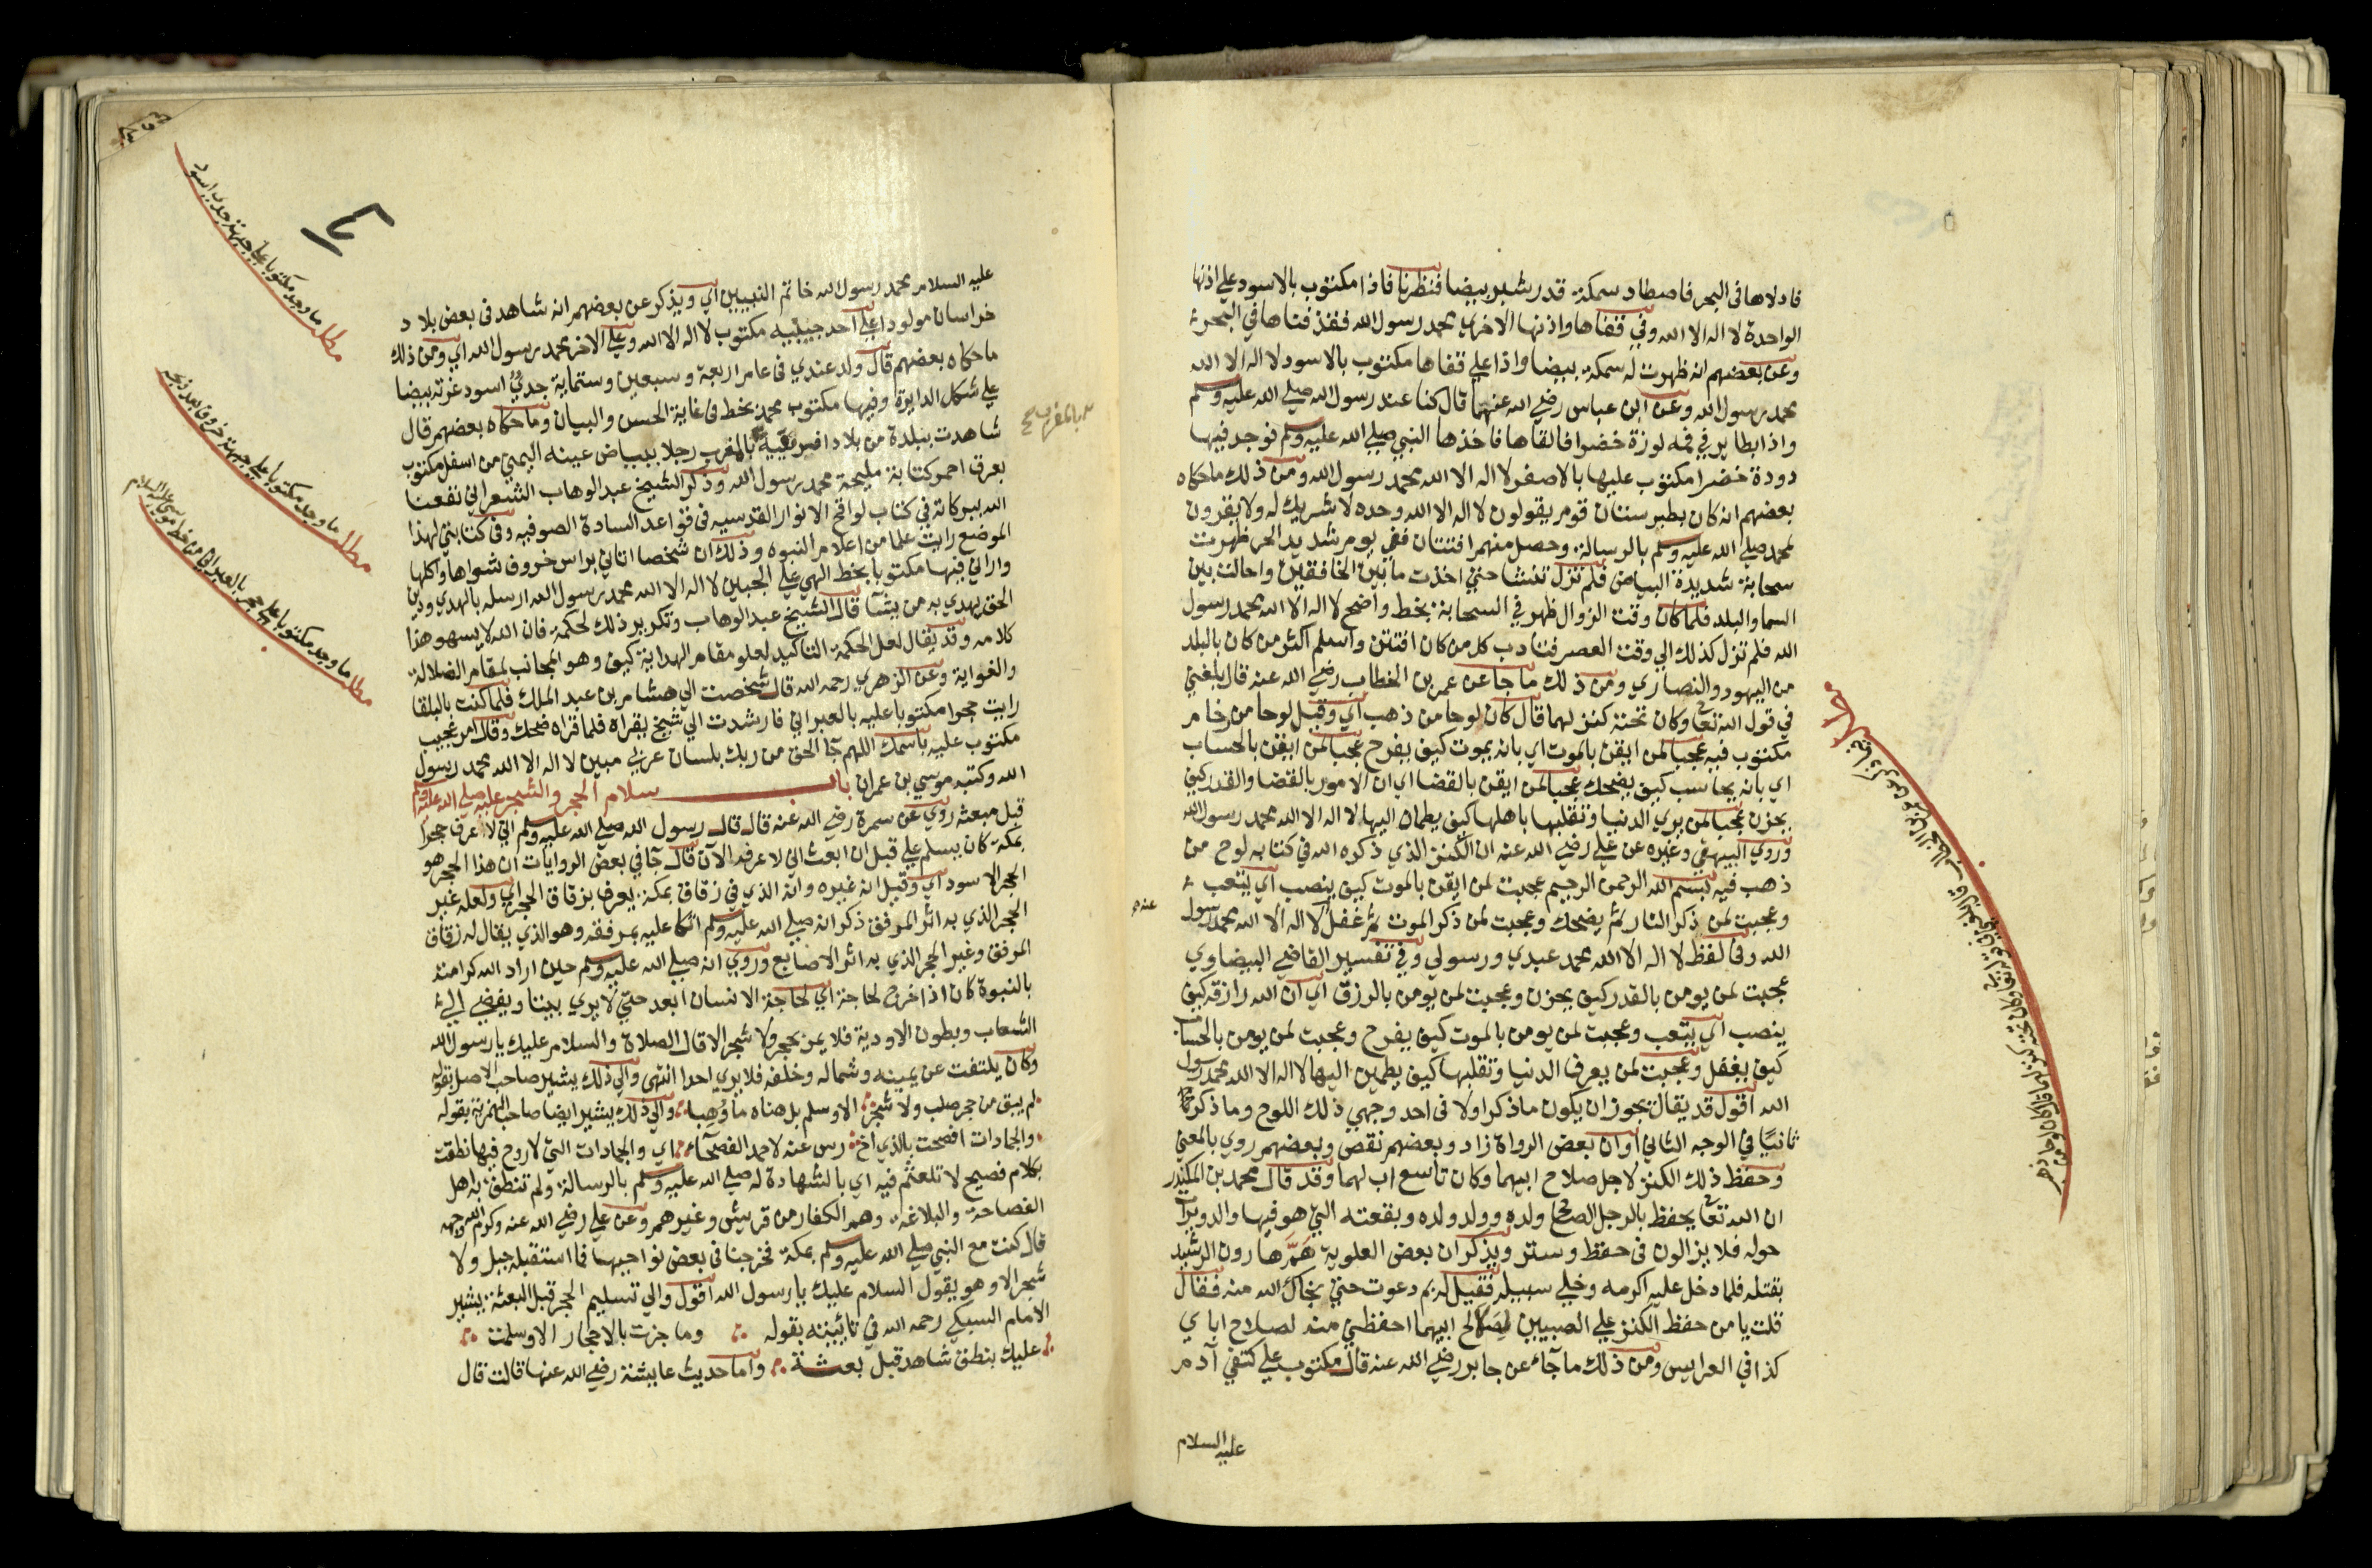 فادلاها في البحر فاصطاد سمكة قدر شبر بيضا فنظرنا فاذا مكتوب بالاسود علي اذنها
الواحدة لا اله الا الله وفي قفاها واذنها الاخري محمد رسول الله فقذفناها في البحر
وعن بعضهم انه ظهرت له سمكة بيضا واذا علي قفاها مكتوب بالاسود لا اله الا الله
محمد رسول الله وعن ابن عباس رضي الله عنهما قال كنا عند رسول الله صلي الله عليه وسلم
واذا بطاير في فمه لوزة خضرا فالقاها فاخذها النبي صلي الله عليه وسلم فوجد فيها
دودة خضرا مكتوب عليها بالاصفر لا اله الا الله محمد رسول الله ومن ذلك ما حكاه
بعضهم انه كان بطبرستان قوم يقولون لا اله الا الله وحده لا شريك له ولا يقرون
لمحمد صلي الله عليه وسلم بالرسالة وحصل منهم افتتان ففي يوم شديد الحر ظهرت
سحابة شديدة البياض فلم تزل تنشا حتي اخذت ما بين الخافقين واحالت بين
السما والبلد فلما كان وقت الزوال ظهر في السحابة بخط واضح لا اله الا الله محمد رسول
الله فلم تزل كذلك الي وقت العصر فتاب كل من كان افتتن واسلم اكثر من كان بالبلد
من اليهود والنصاري ومن ذلك ما جا عن عمر بن الخطاب رضي الله عنه قال بلغني
في قول الله تعا وكان تحته كنز لهما قال كان لوحا من ذهب اي وقيل لوحا من رخام
مكتوب فيه عجبا لمن ايقن بالموت اي بانه يموت كيف يفرح عجبا لمن ايقن بالحساب
اي بانه يحاسب كيف يضحك عجبا لمن ايقن بالقضا اي ان الامور بالقضا والقدر كيف
يحزن عجبا لمن يري الدنيا وتقلبها باهلها كيف يطمان اليها لا اله الا الله محمد رسول الله
وروي البيهقي وغيره عن علي رضي الله عنه ان الكنز الذي ذكره الله في كتابه لوح من
ذهب فيه بسم الله الرحمن الرحيم عجبت لمن ايقن بالموت كيف ينصب اي يتعب
وعجبت لمن ذكر النار ثم يضحك وعجبت لمن ذكر الموت ثم غفل لا اله الا الله محمد رسول
الله وفي لفظ لا اله الا الله محمد عبدي ورسولي وفي تفسير القاضي البيضاوي
عجبت لمن يومن بالقدر كيف يحزن وعجبت لمن يومن بالرزق اي ان الله رازقه كيف
ينصب اي يتعب وعجبت لمن يومن بالموت كيف يفرح وعجبت لمن يومن بالحساب
كيف يغفل وعجبت لمن يعرف الدنيا وتقلبها كيف يطمين اليها لا اله الا الله محمد رسول
الله اقول قد يقال يجوز ان يكون ما ذكر اولا في احد وجهي ذلك اللوح وما ذكر
ثانيا في الوجه الثاني او ان بعض الرواة زاد وبعضهم نقص وبعضهم روي بالمعني
وحفظ ذلك الكنز لاجل صلاح ابيهما وكان تاسع اب لهما وقد قال محمد بن المنكدر
ان الله تعا يحفظ بالرجل الصالح ولده وولد ولده وبقعته التي هو فيها والدويرات
حوله فلا يزالون في حفظ وستر ويذكر ان بعض العلوية هم هارون الرشيد
بقتله فلما دخل عليه اكرمه وخلي سبيله فقيل له بم دعوت حتي نجاك الله منه فقال
قلت يا من حفظ الكنز علي الصبيين لصلاح ابيهما احفظني منه لصلاح اباي
كذا في العرايس ومن ذلك ما جآء عن جابر رضي الله عنه قال مكتوب علي كتفي آدم
عليه السلام
عليه السلام محمد رسول الله خاتم النبيين اي ويذكر عن بعضهم انه شاهد في بعض بلاد
خراسان مولودا علي احد جبينيه مكتوب لا اله الا الله وعلي الاخر محمد رسول الله اي ومن ذلك
ما حكاه بعضهم قال ولد عندي في عام اربعة وسبعين وستماية جدي اسود غرته بيضا
علي شكل الدايرة وفيها مكتوب محمد بخط في غاية الحسن والبيان وما حكاه بعضهم قال
شاهدت ببلدة من بلاد افريقية بالمغرب رجلا ببياض عينه اليمني من اسفل مكتوب
بعرق احمر كتابة مليحة محمد رسول الله وذكر الشيخ عبد الوهاب الشعراني نفعنا
الله ببركاته في كتاب لواقح الانوار القدسيه في قواعد السادة الصوفيه وفي كتابتي لهذا
الموضع رايت علما من اعلام النبوه وذلك ان شخصا اتاني براس خروف شواها واكلها
واراني فيها مكتوبا بخط الهي علي الجبين لا اله الا الله محمد رسول الله ارسله بالهدي ودين
الحق يهدي به من يشآ قال الشيخ عبد الوهاب وتكرير ذلك لحكمة فان الله لا يسهو هذا
كلامه وقد يقال لعل الحكمة التاكيد لعلو مقام الهداية كيف وهو المجانب لمقام الضلالة
والغواية وعن الزهري رحمه الله قال شخصت الي هشام بن عبد الملك فلما كنت بالبلقا
رايت حجرا مكتوبا عليه بالعبراني فارشدت الي شيخ يقراه فلما قراه ضحك وقال امر عجيب
مكتوب عليه باسمك اللهم جآ الحق من ربك بلسان عربي مبين لا اله الا الله محمد رسول
الله وكتبه موسي بن عمران باب سلام الحجر والشجر عليه صلي الله عليه وسلم
قبل مبعثه روي عن سمرة رضي الله عنه قال قال رسول الله صلي الله عليه وسلم اني لاعرف حجرا
بمكة كان يسلم علي قبل ان ابعث اني لاعرفه الآن قال جآ في بعض الروايات ان هذا الحجر هو
الحجر الاسود اي وقيل انه غيره وانه الذي في زقاق بمكة يعرف بزقاق الحجر اي ولعله غير
الحجر الذي به اثر المرفق ذكر انه صلي الله عليه وسلم اتكا عليه بمرفقه وهو الذي يقال له زقاق
المرفق وغير الحجر الذي به اثر الاصابع وروي انه صلي الله عليه وسلم حين اراد الله كرامته
بالنبوة كان اذا خرج لحاجة اي لحاجة الانسان ابعد حتي لا يري بيتا ويفضي الي
الشعاب وبطون الاودية فلا يمر بحجر ولا شجر الا قال الصلاة والسلام عليك يا رسول الله
وكان يلتفت عن يمينه وشماله وخلفه فلا يري احدا انتهي والي ذلك يشير صاحب الاصل بقوله
لم يبق من حجر صلب ولا شجر الا وسلم بل هناه ما وهبا والي ذلك يشير ايضا صاحب الهمزية بقوله
والجمادات افصحت بالذي اخرس عنه لاحمد الفصحآء اي والجمادات التي لا روح فيها نطقت
بكلام فصيح لا تلعثم فيه اي بالشهادة له صلي الله عليه وسلم بالرسالة ولم تنطق به اهل
الفصاحة والبلاغة وهم الكفار من قريش وغيرهم وعن علي رضي الله عنه وكرم الله وجهه
قال كنت مع النبي صلي الله عليه وسلم بمكة فخرجنا في بعض نواحيها فما استقبله جبل ولا
شجر الا وهو يقول السلام عليك يا رسول الله اقول والي تسليم الحجر قبل البعثة يشير
الامام السبكي رحمه الله في تائيته بقوله وما جزت بالاحجار الا وسلمت
عليك بنطق شاهد قبل بعثة واما حديث عايشة رضي الله عنها قالت قال
مطلب ما وجد مكتوبا علي جبهة جدي اسود
مطلب ما وجد مكتوبا علي جبهة خروف بعد ذبحه
مطلب ما وجد مكتوبا علي حجر بالعبراني من خط موسي عليه السلام